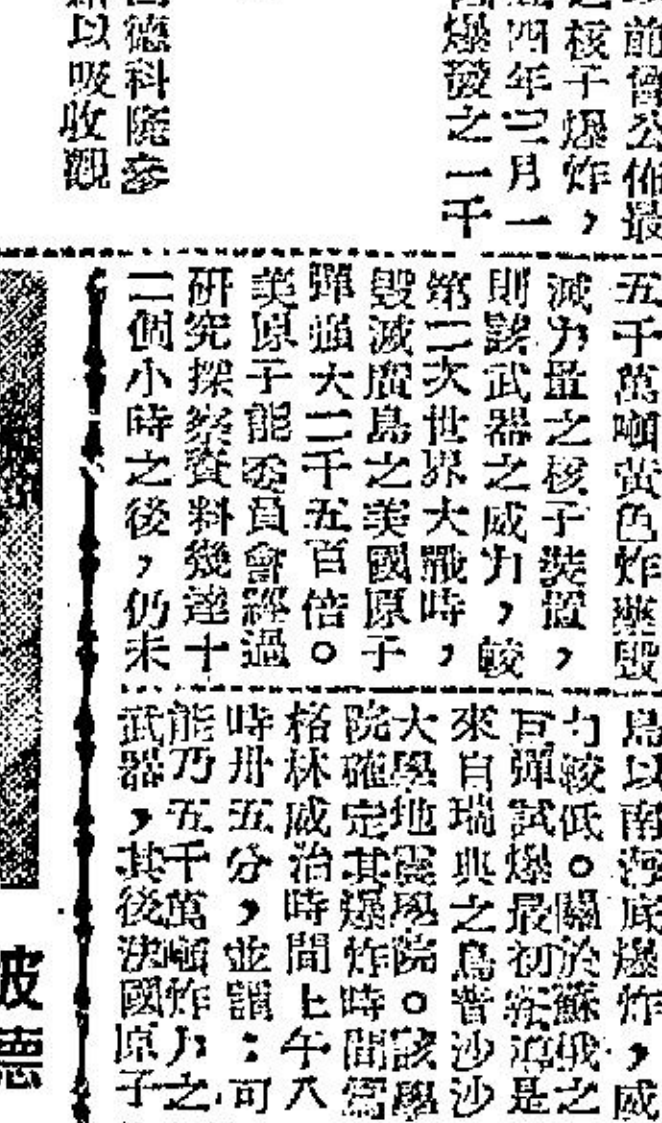 前曾公佈最
之核子爆炸，
四年三月一
爆發之一千
德科院參
以吸收觀
五千萬噸黃色炸藥毀
滅力量之核子裝置，
則該武器之威力，較
第二次世界大戰時，
毀滅廣島之美國原子
彈強大二千五百倍。
美原子能委員會經過
研究探察資料幾達十
二個小時之後，仍未
島以南海底爆炸，威
力較低。關於蘇俄之
巨彈試爆最初報道是
來自瑞典之烏普沙沙
大學地震學院。該學
院確定其爆炸時間為
格林威治時間上午八
時卅五分，並謂：可
能乃五千萬噸炸力之
武器，其後決國原子
波德